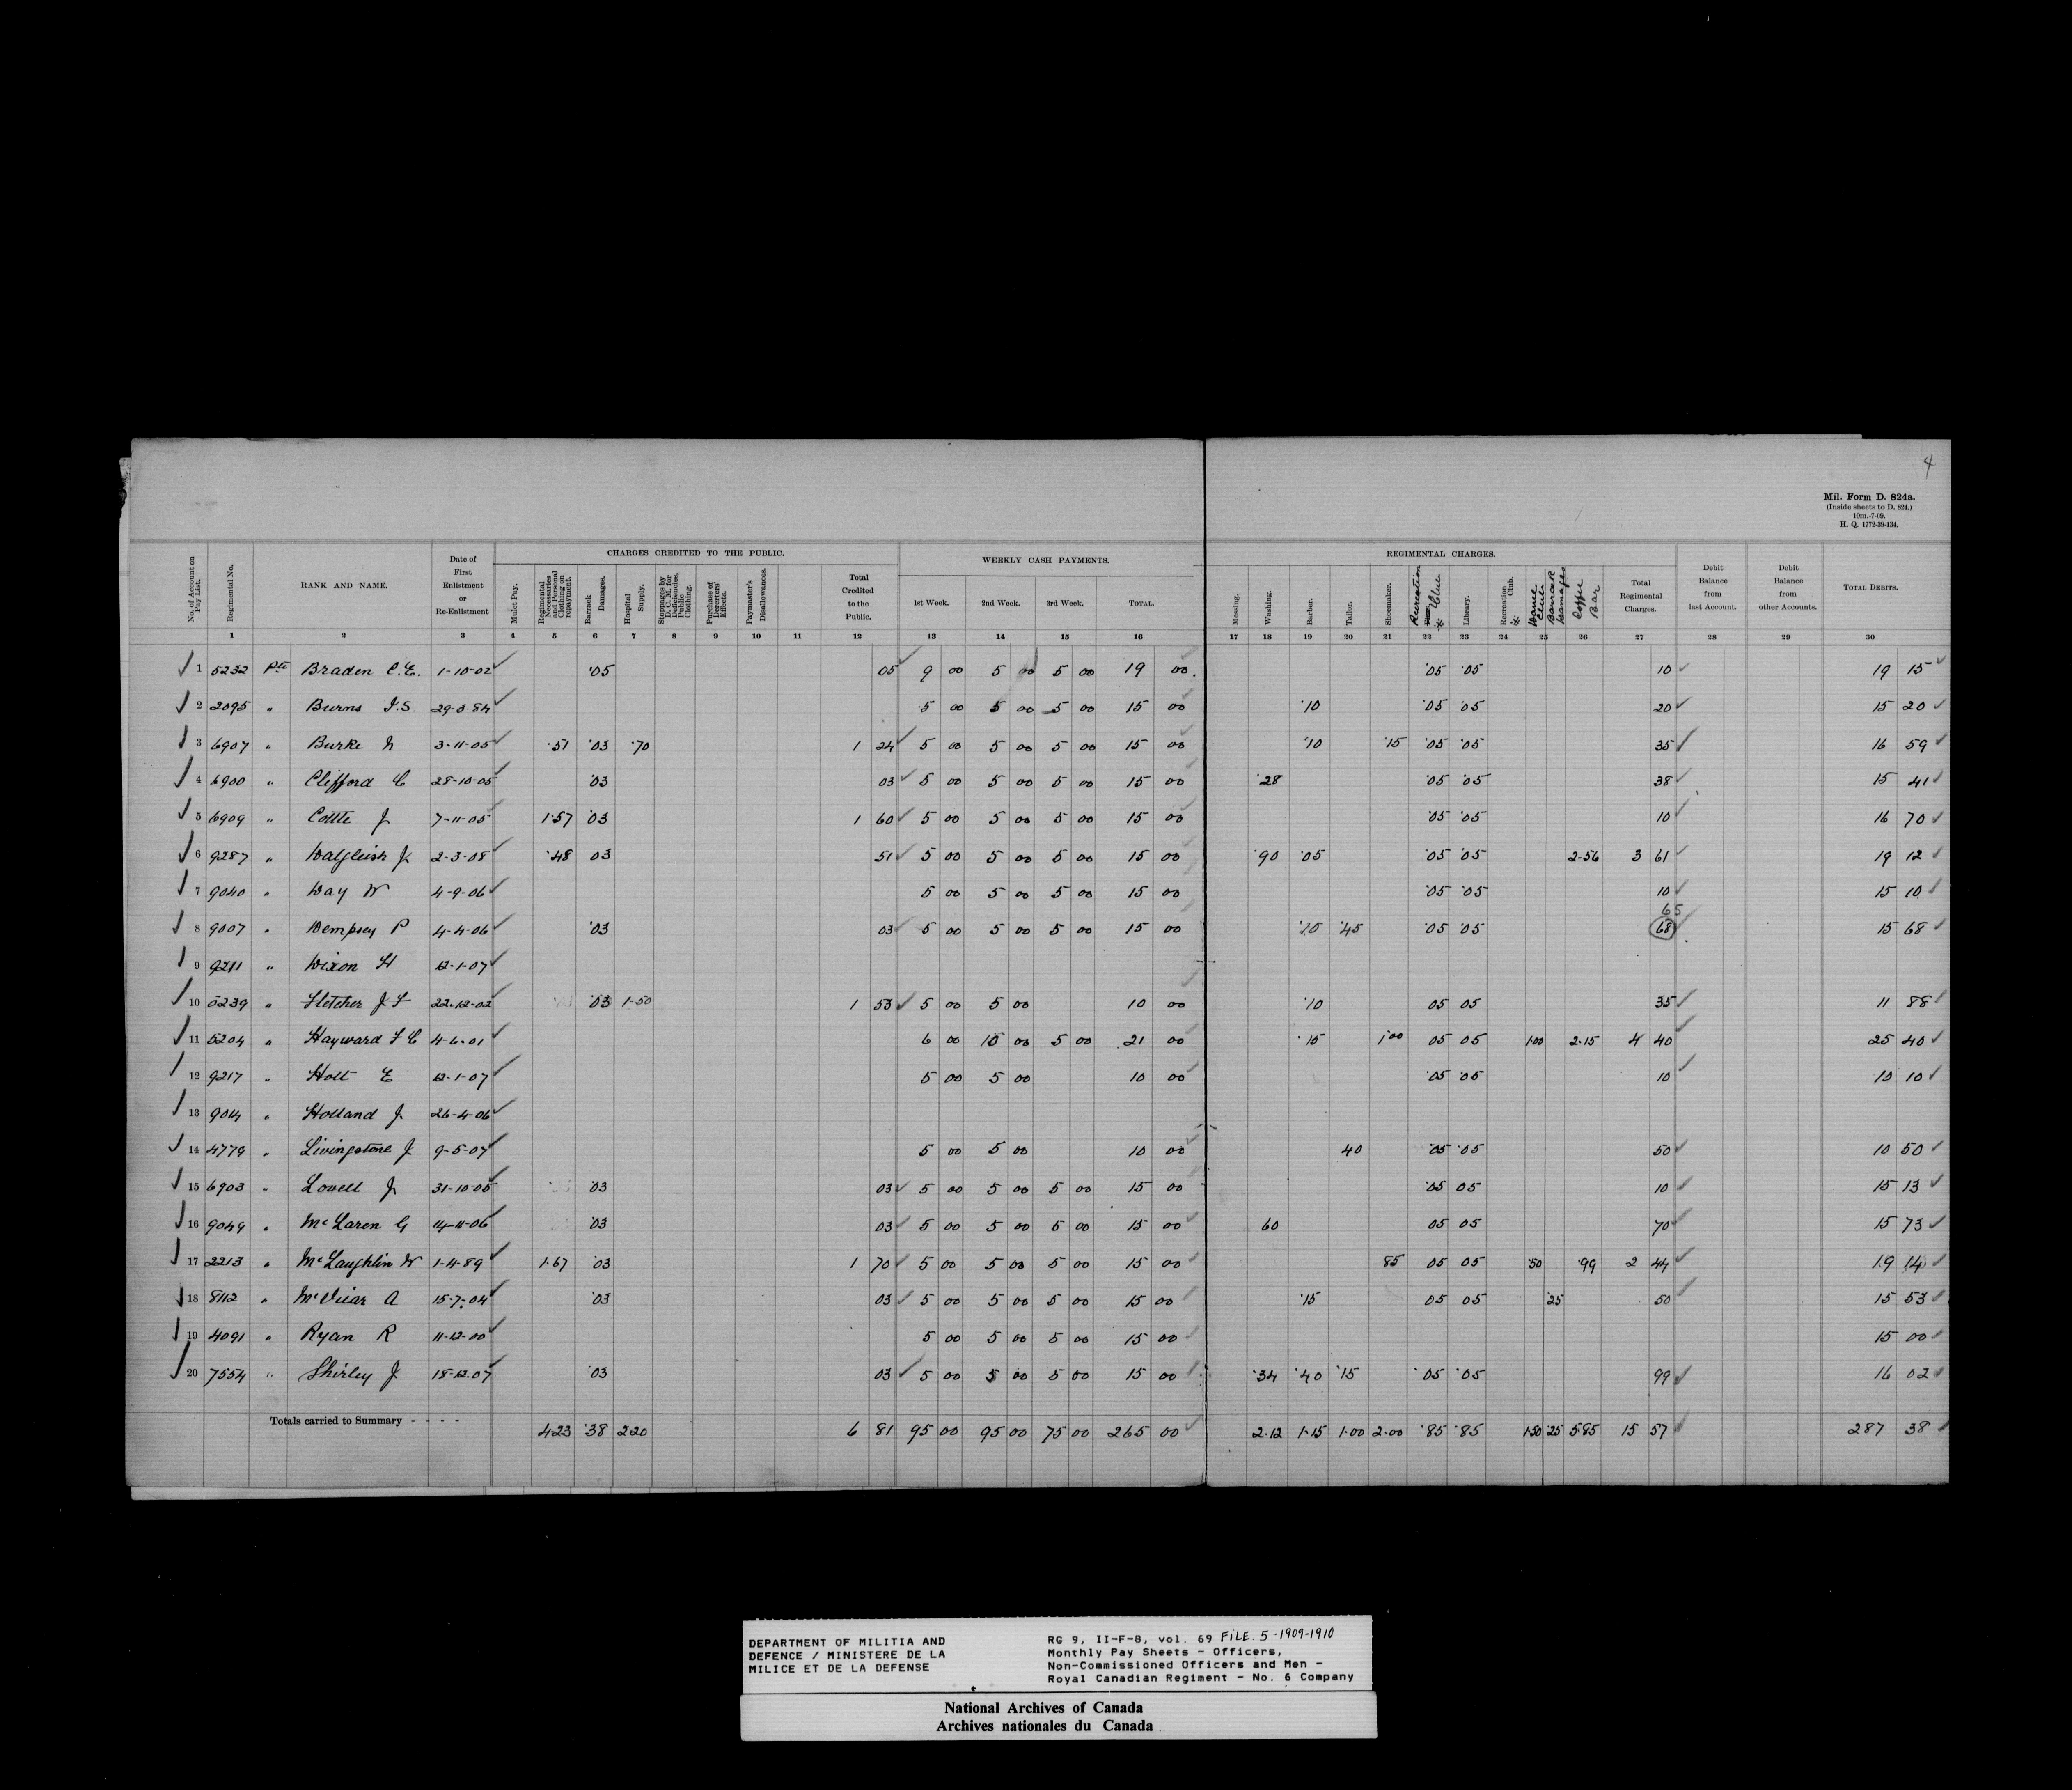 4
Mil. Form D. 824a.
(Inside sheets to D. 824.)
10m.-7-09.
H. Q. 1772-39-134.
CHARGES CREDITED TO THE PUBLIC. WEEKLY CASH PAYMENTS. REGIMENTAL CHARGES.
No. of Account on Pay List. Regimental No. RANK AND NAME. Date of First Enlistment or Re-Enlistment Mulct Pay. Regimental Necessaries and Personal Clothing on repayment. Barrack Damages. Hospital Supply. Stoppages by D. C. M. for Deficiencies, Public Clothing. Purchase of Deserters' Effects. Paymaster's Disallowances. Total Credited to the Public. 1st Week. 2nd Week. 3rd Week. TOTAL. Messing. Washing. Barber. Tailor. Shoemaker. Recreation Club Library. Recreation Club. Dance Club Barrack Damages Coffee Bar Total Regimental Charges. Debit Balance from last Account. Debit Balance from other Accounts. TOTAL DEBITS.
1 2 3 4 5 6 7 8 9 10 11 12 13 14 15 16 17 18 19 20 21 22 23 24 25 26 27 28 29 30
1 5232 Pte Braden C.E. 1-10-02 .05 05 9 00 5 00 5 00 19 00 .05 .05 10 19 15
2 2095 " Burns J.S. 5 00 5 00 5 00 15 00 .10 .05 .05 20 15 20
3 6907 " Burke N 3-11-05 .51 .03 .70 1 24 5 00 5 00 5 00 15 00 .10 .15 .05 .05 35 16 59
4 6900 " Clifford C 28-10-05 .03 03 5 00 5 00 5 00 15 00 .28 .05 .05 38 15 41
5 6909 " Cottle J 7-11-05 1.57 .03 1 60 5 00 5 00 5 00 15 00 .05 .05 10 16 70
6 9287 " Dalgleish J 2-3-08 .48 03 51 5 00 5 00 5 00 15 00 .90 .05 .05 .05 2.56 3 61 19 12
7 9040 " Day W 4-9-06 5 00 5 00 5 00 15 00 .05 .05 10 15 10
65
8 9007 " Dempsey P 4-4-06 .03 03 5 00 5 00 5 00 15 00 .10 .45 .05 .05 68 15 68
9 9211 " Dixon H 12-1-07
10 5239 " Fletcher J F 22-12-02 .03 1.50 1 53 5 00 5 00 10 00 .10 05 05 35 11 88
11 5204 " Hayward F C 4-6-01 6 00 10 00 5 00 21 00 .15 1.00 05 05 1.00 2.15 4 40 25 40
12 9217 " Holt E 12-1-07 5 00 5 00 10 00 .05 .05 10 10 10
13 9014 " Holland J. 26-4-06
14 4779 " Livingstone J 9-5-07 5 00 5 00 10 00 40 .05 .05 50 10 50
15 6903 " Lovell J 31-10-05 .03 03 5 00 5 00 5 00 15 00 .05 05 10 15 13
16 9049 " McLaren G 14-11-06 .03 03 5 00 5 00 5 00 15 00 60 05 05 70 15 73
17 2213 " McLaughlin W 1-4-89 1.67 .03 1 70 5 00 5 00 5 00 15 00 85 05 05 .50 .99 2 44 19 14
18 8112 " McVicar A 15-7-04 .03 03 5 00 5 00 5 00 15 00 .15 05 05 .25 50 15 53
19 4091 " Ryan R 11-12-00 5 00 5 00 5 00 15 00 15 00
20 7554 " Shirley J 18-12-07 .03 03 5 00 5 00 5 00 15 00 .34 .40 .15 .05 .05 99 16 02
Totals carried to Summary - - - - 4.23 .38 2.20 6 81 95 00 95 00 75 00 265 00 2.12 1.15 1.00 2.00 .85 .85 1.50 .25 5.85 15 57 287 38
DEPARTMENT OF MILITIA AND
DEFENCE / MINISTERE DE LA
MILICE ET DE LA DEFENSE
RG 9, II-F-8, vol. 69 FILE. 5 -1909-1910
Monthly Pay Sheets - Officers,
Non-Commissioned Officers and Men -
Royal Canadian Regiment - No. 6 Company
National Archives of Canada
Archives nationales du Canada